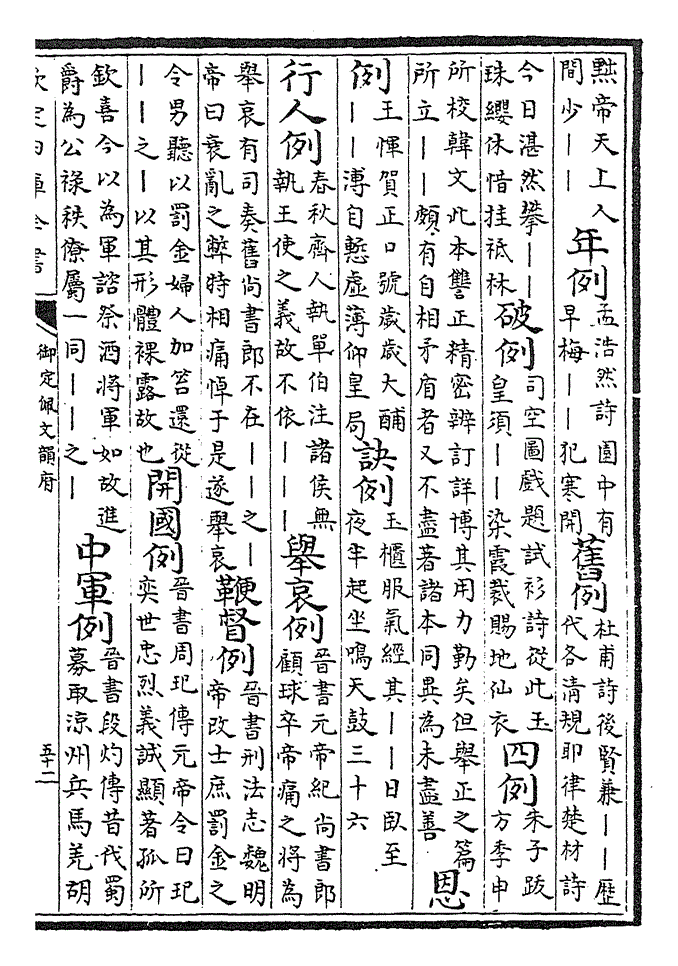 黥帝天上人間少丨丨 年例 孟浩然詩園中有早梅丨丨犯寒開 舊例 杜甫詩後賢兼丨丨歷代各清規耶律楚材詩
今日湛然攀丨丨珠纓休惜挂祗林 破例 司空圖戲題試衫詩從此王皇須丨丨染霞裁賜地仙衣 四例 朱子跋方季申
所校韓文此本讐正精密辨訂詳博其用力勤矣但舉正之篇所立丨丨頗有自相矛盾者又不盡著諸本同異為未盡善 恩
例 王惲賀正口號歲歲大酺丨丨溥自慙虛薄仰皇局 訣例 玉櫃服氣經其丨丨日臥至夜半起坐鳴天鼓三十六
行人例 春秋齊人執單伯注諸侯無執王使之義故不依丨丨丨 舉哀例 晉書元帝紀尚書郎顧球卒帝痛之將為
舉哀有司奏舊尚書郎不在丨丨之丨帝曰衰亂之弊特相痛悼于是遂舉哀 鞭督例 晉書刑法志魏明帝改士庶罰金之
令男聽以罰金婦人加笞還從丨丨之丨以其形體裸露故也 開國例 晉書周玘傳元帝令曰玘奕世忠烈義誠顯著孤所
欽喜今以為軍諮祭酒將軍如故進爵為公祿秩僚屬一同丨丨之丨 中軍例 晉書段灼傳昔伐蜀募取涼州兵馬羌胡
欽定四庫全書
御定佩文韻府
五十二